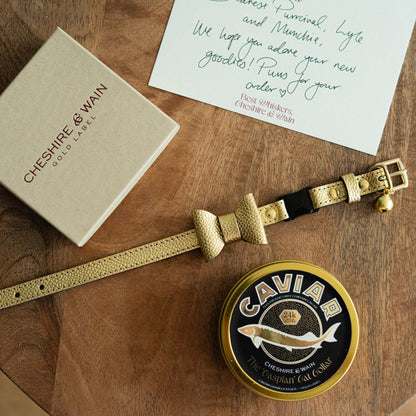 Dearest Purrcival, Lyle
and Munchie,
We hope you adore your new
goodies! Purrs for your
order
Best Whiskers,
Cheshire & Wain
CHESHIRE & WAIN
GOLD LABEL
CAVIAR
24k
CHESHIRE & WAIN
The 'Caspian' Cat Collar